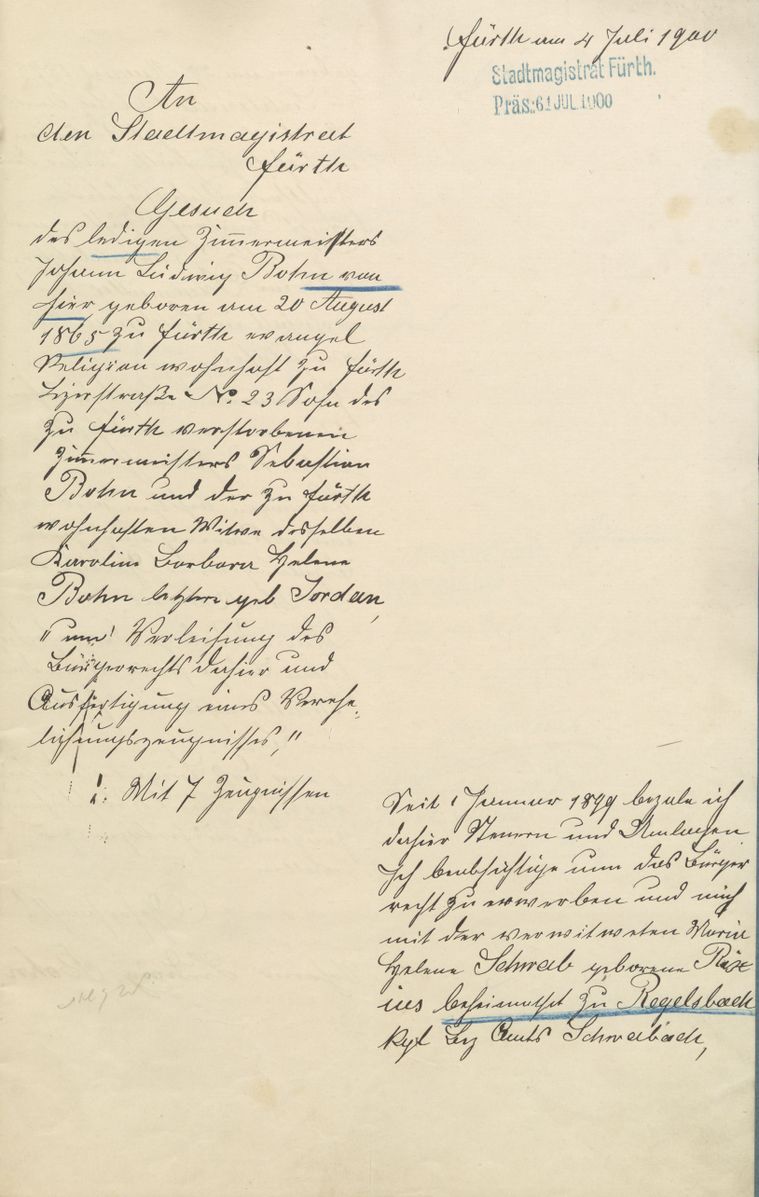 Fürth am 4 Juli 1900
Stadtmagistrat Fürth.
Präs. 6 JUL. 1900
An
den Stadtmagistrat
Fürth
Gesuch
des ledigen Zimmermeisters
Johann Ludwig Bohn von
hier geboren am 20 August
1865 zu Fürth evangel
Religion wohnhaft zu Fürth
No. 23 Sohn des
zu Fürth verstorbenen
Zimmermeisters Sebastian
Bohn und der zu Fürth
wohnhaften Witwe desselben
Karolina Barbara Helene
Bohn letztere geb Jordan,
"um" Verleihung des
Bürgerrechts dahier und
Ausfertigung eines Verehe-
lichungszeugnisses,"
Mit 7 Zeugnissen
Seit 1 Januar 1899 bezale ich
dahier Steuern und Umlagen
Ich beabsichtige nun das Bürger
recht zu erwerben und mich
mit der verwitweten Maria
Helene Schwab geborene
beheimathet zu Regelsbach
kgl Bez Amts Schwabach,